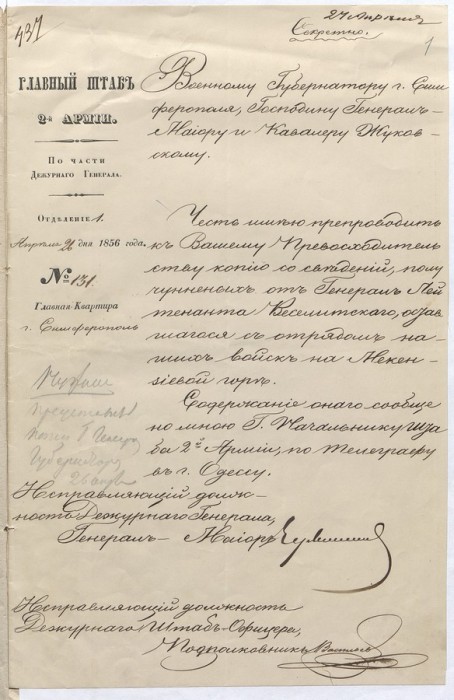 437
24 Апрѣля
Секретно.
1
ГЛАВНЫЙ ШТАБЪ
2й АРМIИ.
По части
Дежурнаго Генерала.
Отдѣленiе 1.
Апрѣля 26 дня 1856 года.
№ 131.
Главная-Квартира
г. Симферополь
Военному Губернатору г. Сим
ферополя, Господину Генералъ-
Маiору и Кавалеру Жуков-
скому.
Честь имѣю препроводить
къ Вашему Превосходитель
ству копiю со свѣденiй, полу
чунненыхъ отъ Генералъ Лей
тенанта Веселитскаго, остав
шагося съ отрядомъ на-
шихъ войскъ на Мекен-
зiевой горѣ.
Содержанiе онаго сообще
но мною Г. Начальнику шта
ба 2й Армiи, по телеграфу
въ г. Одессу.
Копiю Г.
Губернатору
Исправляющiй долж-
ность Дежурнаго Генерала,
Генералъ-Маiоръ
Исправляющiй должность
Дежурнаго Штабъ-Офицера,
Подполковникъ